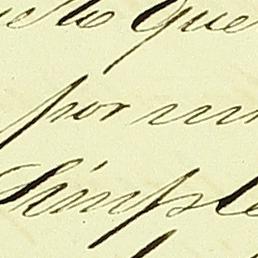 que
por un
Simple